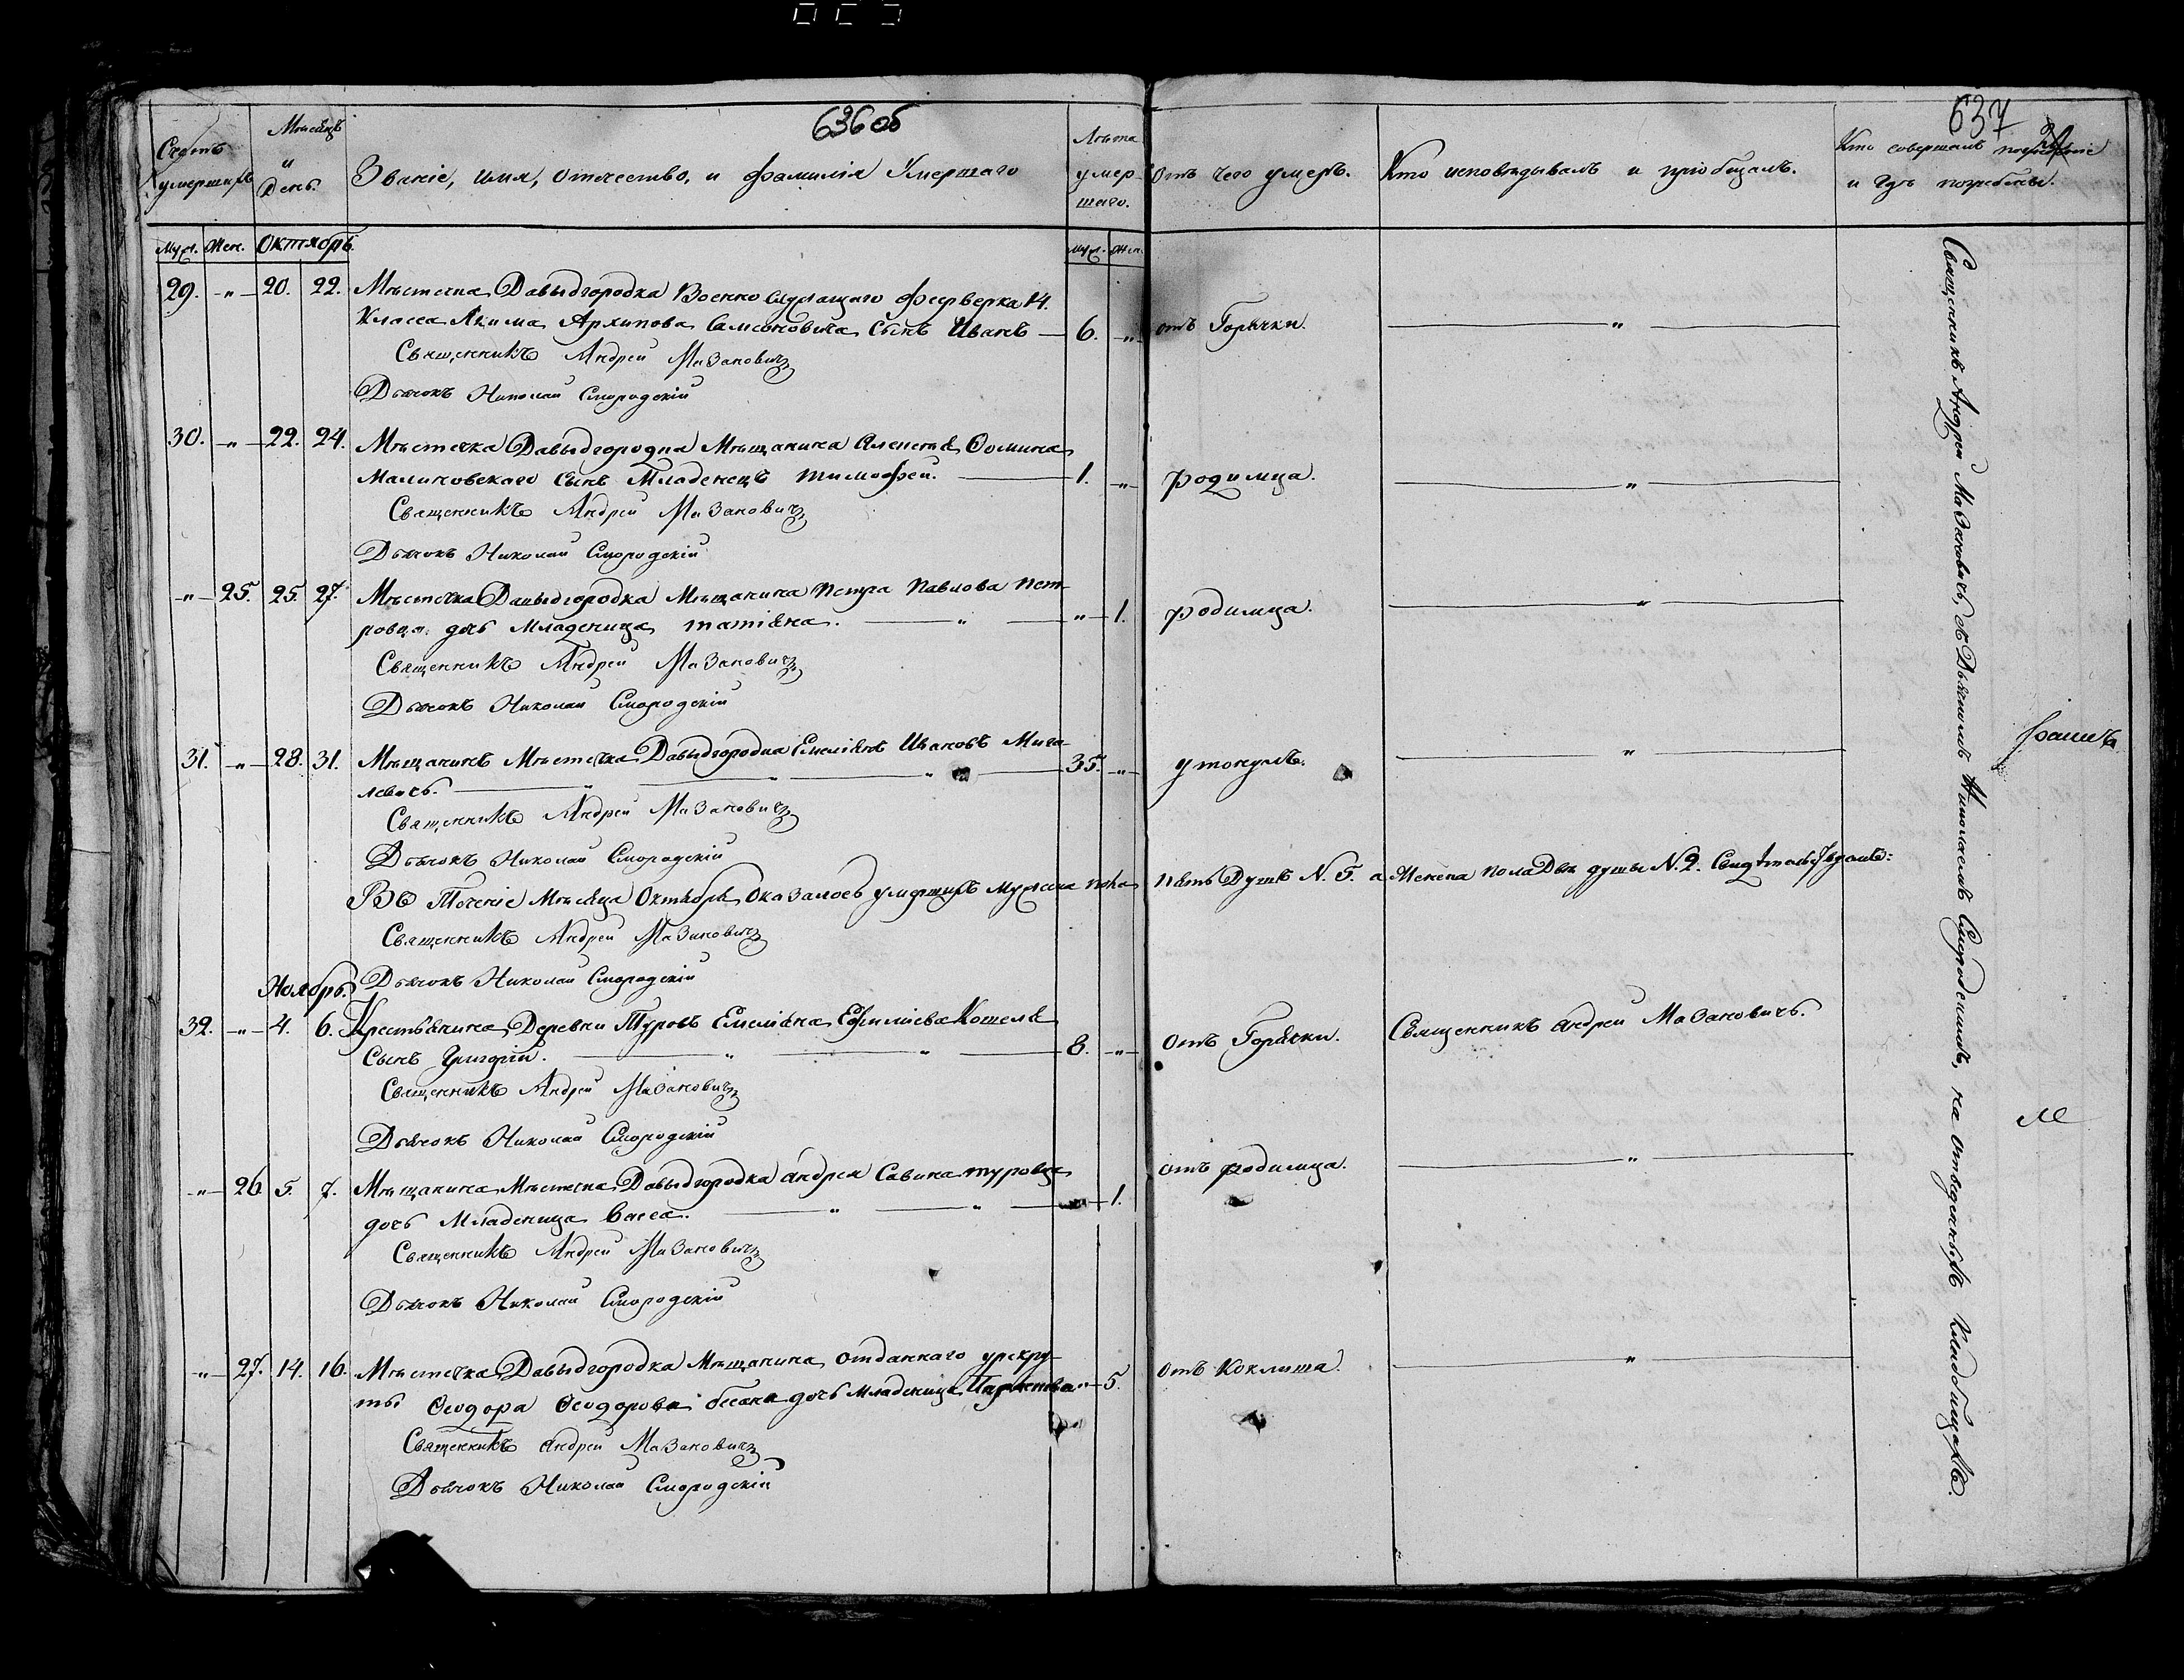 636 об
637
Счетъ умершихъ
Мѣсяцъ и День.
Званіе, имя, отечество, и фамилія Умершаго
Лѣта умершаго.
Отъ чего умеръ.
Кто исповѣдывалъ и пріобщалъ.
Кто совершалъ погребеніе и гдѣ погребены.
Муж. Жен. Октябрь.
Муж. Жен.
29. -„- 20. 22. Мѣстечка Давыдгородка Военно служащаго фейрверка 14.
Класса Якима Архипова Самсоновича Сынъ Иванъ — 6. -„- отъ Горячки. — „ —
Священникъ Андрей Мазановичъ
Дьячокъ Николай Смородскій
30. -„- 22. 24. Мѣстечка Давыдгородка Мѣщанина Алексѣя Фомина
Малиновскаго Сынъ Младенецъ Тимофей. — 1. -„- родимца. — „ —
Священникъ Андрей Мазановичъ
Дьячокъ Николай Смородскій
-„- 25. 25. 27. Мѣстечка Давыдгородка Мѣщанина Петра Павлова Пет-
ровца дочь Младеница Татіяна. — „ — -„- 1. родимца. — „ —
Священникъ Андрей Мазановичъ
Дьячокъ Николай Смородскій
31. -„- 28. 31. Мѣщанинъ Мѣстечка Давыдгородка Емеліянъ Ивановъ Мига-
левичъ. — „ — „ — 35. -„- утонулъ. — „ —
Священникъ Андрей Мазановичъ
Дьячокъ Николай Смородскій
Въ Теченіе Мѣсяца Октября Оказалось умершихъ мужеска пола пять Душъ N. 5. а Женска пола Двѣ душы N. 2. Свидѣтельствуемъ:
Священникъ Андрей Мазановичъ
Дьячокъ Николай Смородскій
Ноябрь.
32. -„- 4. 6. Крестьянина Деревни Туровъ Емеліяна Кошеля
Сынъ Григорій. — „ — „ — 8. -„- Отъ Горячки. Священникъ Андрей Мазановичъ.
Священникъ Андрей Мазановичъ
Дьячокъ Николай Смородскій
-„- 26. 5. 7. Мѣщанина Мѣстечка Давыдгородка Андрея Савина Туровца
дочь Младеница Васса. — „ — „ — 1. отъ родимца. — „ —
Священникъ Андрей Мазановичъ
Дьячокъ Николай Смородскій
-„- 27. 14. 16. Мѣстечка Давыдгородка Мѣщанина отданнаго урекру-
ты Феодора Феодорова дочь младеница -„- 5. отъ Коклюша. — „ —
Священникъ Андрей Мазановичъ
Дьячокъ Николай Смородскій
Священникъ Андрей Мазановичъ, съ Дьячкомъ Николаемъ Смородскимъ, на отведенныхъ Кладбищахъ.